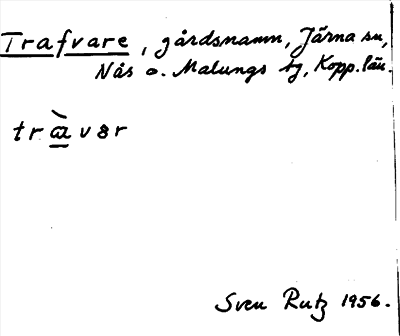 Trafvare, gårdsnamn, Järna sn,
Nås o. Malungs tg, Kopp. län.
tràvər
Sven Rutz 1956.